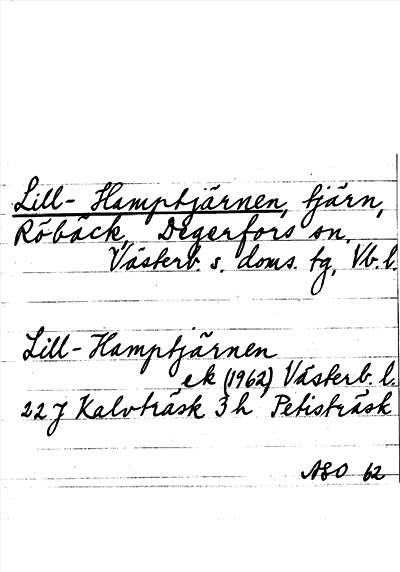 Lill-Hamptjärnen, tjärn,
Röbäck, Degerfors sn,
Västerb. s. doms. tg, Vb. l.
Lill-Hamptjärnen
ek (1962) Västerb. l.
22 J Kalvträsk 3 h Petisträsk
62